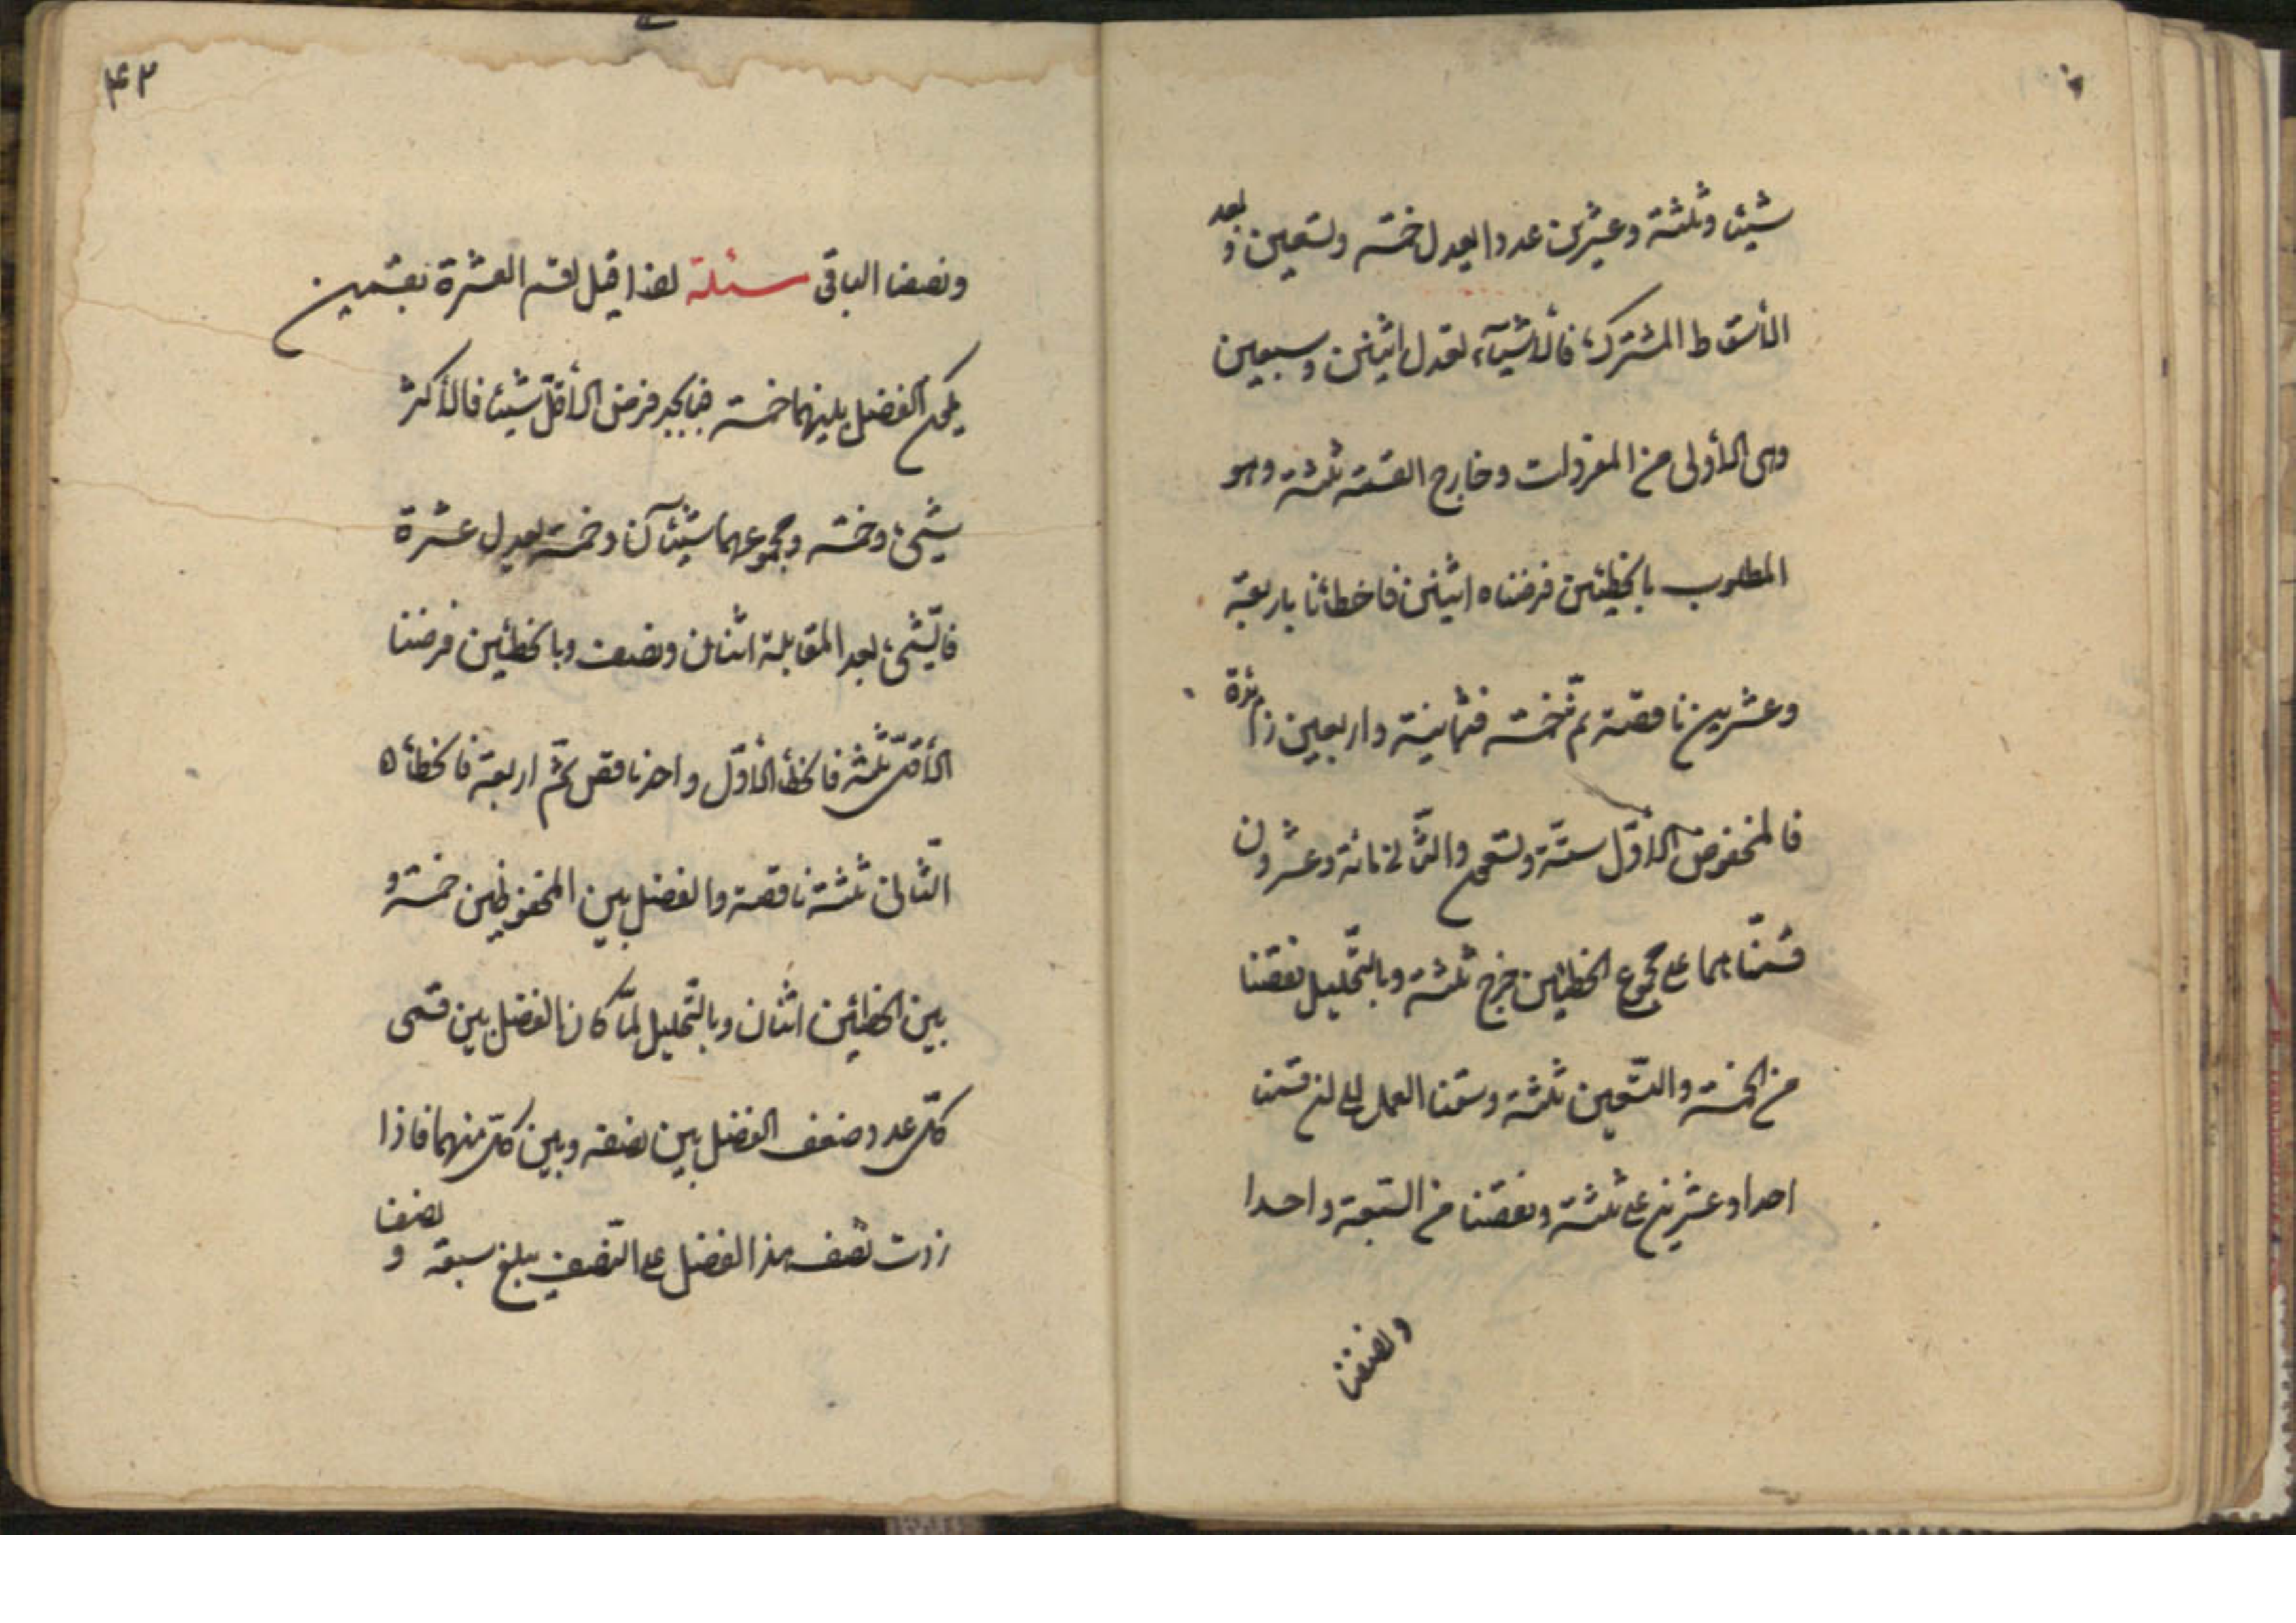 شيئا وثلثة وعشرين عددا يعدل خمسة وتسعين وبعد
الأسقاط المشترك، فالأشيآء تعدل اثنين وسبعين
وهى الأولى من المفردات وخارج القسمة ثلثة وهو
المطلوب بالخطئين فرضناه اثنين فاخطأنا باربعة
وعشرين ناقصة ثمّ خمسة فثمانية واربعين زائدة
فالمحفوض الأوّل ستّة وتسعين والثّانى مائة وعشرون
قسمناهما على مجموع الخطئين خرج ثلثة وبالتّحليل نقصنا
من الخمسة والتّسعين ثلثة وسقنا العمل إلى ان قسمنا
احدا وعشرين على ثلثة ونقصنا من السّبعة واحدا
ونصفنا
۴۲
ونصفنا الباقى مسئلة اذا قيل اقسم العشرة بقسمين
يكون الفضل بينهما خمسة فبالجبر فرض الأقلّ شيئا فالأكثر
شىء وخمسة ومجموعهما شيئآن وخمسة يعدل عشرة
فالشّىء بعد المقابلة اثنان ونصف وبالخطئين فرضنا
الأقلّ ثلثة فالخطأ الأوّل واحد ناقص ثمّ اربعة فالخطأ ه
الثّانى ثلثة ناقصة والفضل بين المحفوظين خمسة و
بين الخطئين اثنان وبالتّحليل لمّا كان الفضل بين قسمى
كلّ عدد ضعف الفضل بين نصفه وبين كلّ منهما فاذا
زدت نصف هذا الفضل على النّصف يبلغ سبعة و نصفا